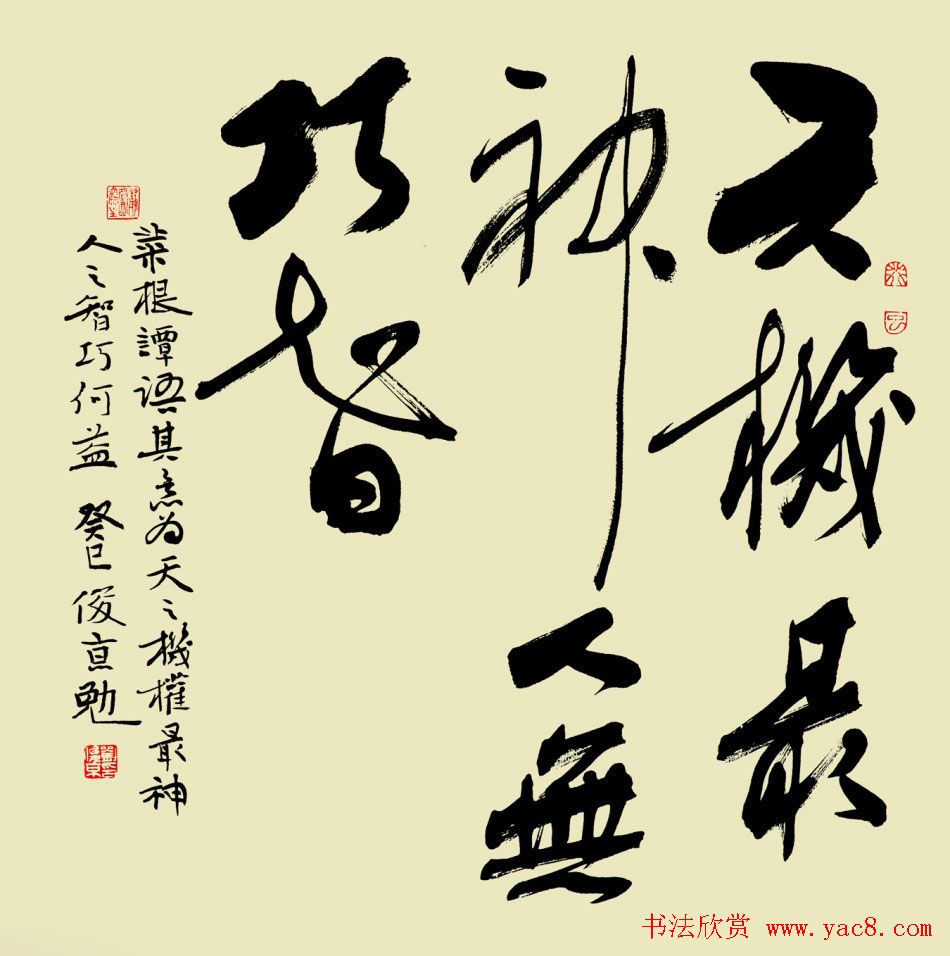 天機最
神人無
巧智
菜根譚語其意為天之機權最神
人之智巧何益 癸巳俊京勉
书法欣赏 www.yac8.com